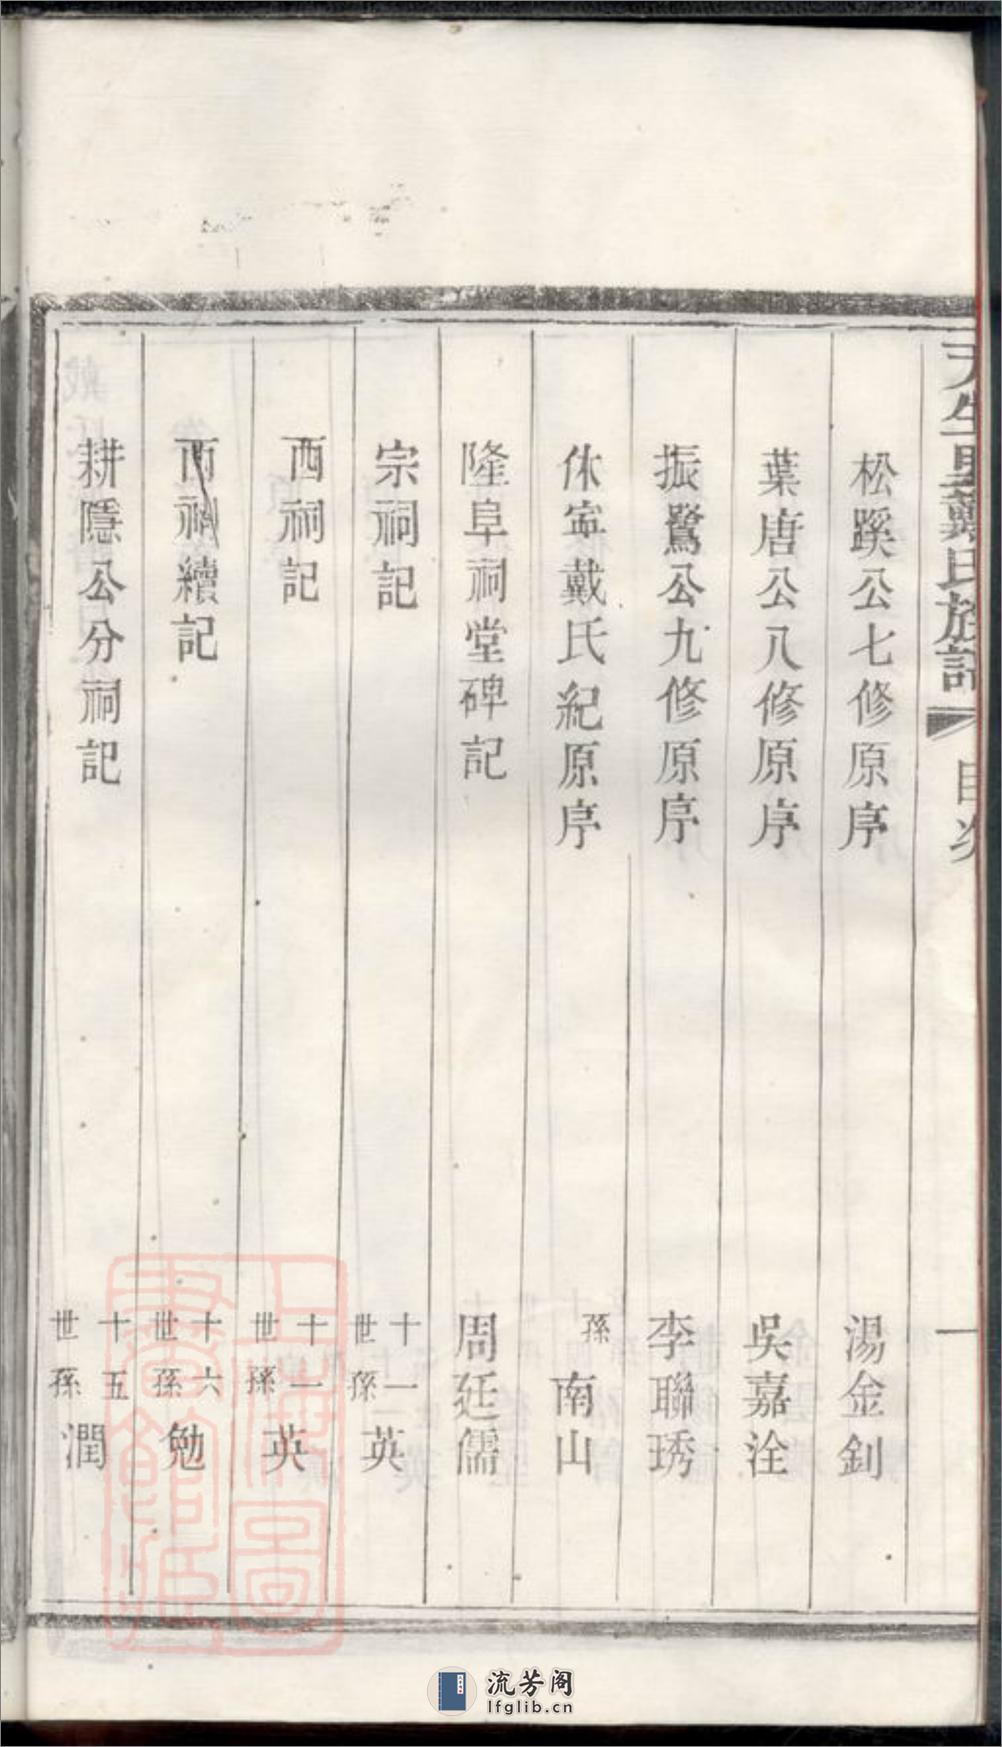 天生里戴氏族譜 目次 一
松蹊公七修原序 湯金釗
葉唐公八修原序 吳嘉洤
振鷺公九修原序 李聯琇
休寧戴氏紀原序 孫南山
隆阜祠堂碑記 周廷儒
宗祠記 十一世孫英
西祠記 十一世孫英
西祠續記 十六世孫勉
耕隱公分祠記 十五世孫潤
上海圖書館藏
流芳阁
lfglib.cn